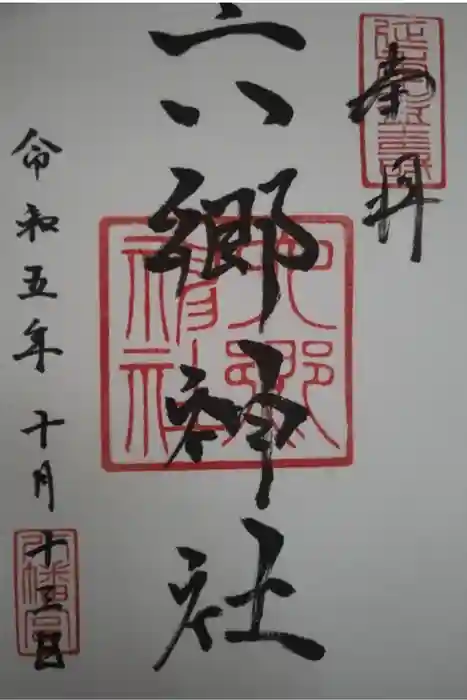 奉拝
六郷神社
令和五年十月十三日
六郷
神社
八幡宮